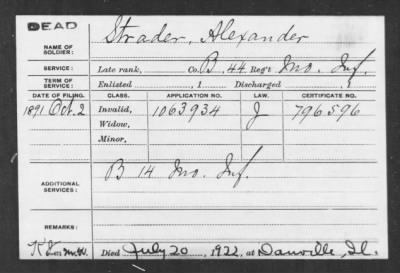 DEAD
NAME OF SOLDIER: Strader, Alexander
SERVICE: Late rank, Co. B, 44 Reg't Mo. Inf.
TERM OF SERVICE: Enlisted , 1 Discharged , 1
DATE OF FILING. CLASS. APPLICATION NO. LAW. CERTIFICATE NO.
1891 Oct. 2 Invalid, 1063934 J 796596
Widow,
Minor,
ADDITIONAL SERVICES: B 14 Mo. Inf.
REMARKS:
Died July 20, 1922, at Danville, Il.